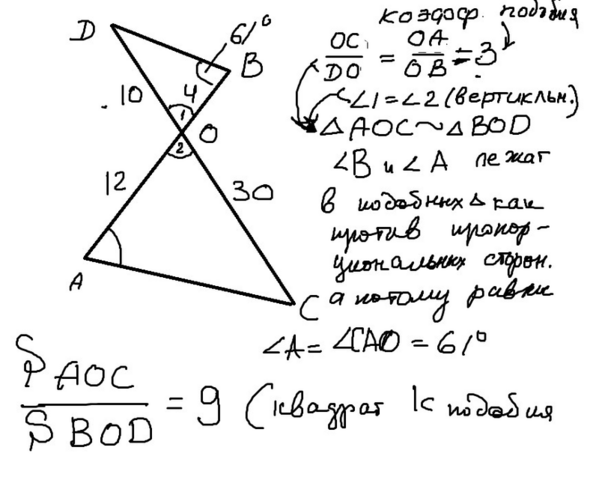 D
61°
B
10
4
1
O
2
12
30
A
C
коэфф. подобия
OC/DO = OA/OB = 3
∠1 = ∠2 (вертикльн.)
△AOC ~ △BOD
∠B и ∠A лежат
в подобных △ как
против пропор-
циональных сторон.
а потому равны
∠A = ∠CAO = 61°
S AOC / S BOD = 9 (квадрат k подобия